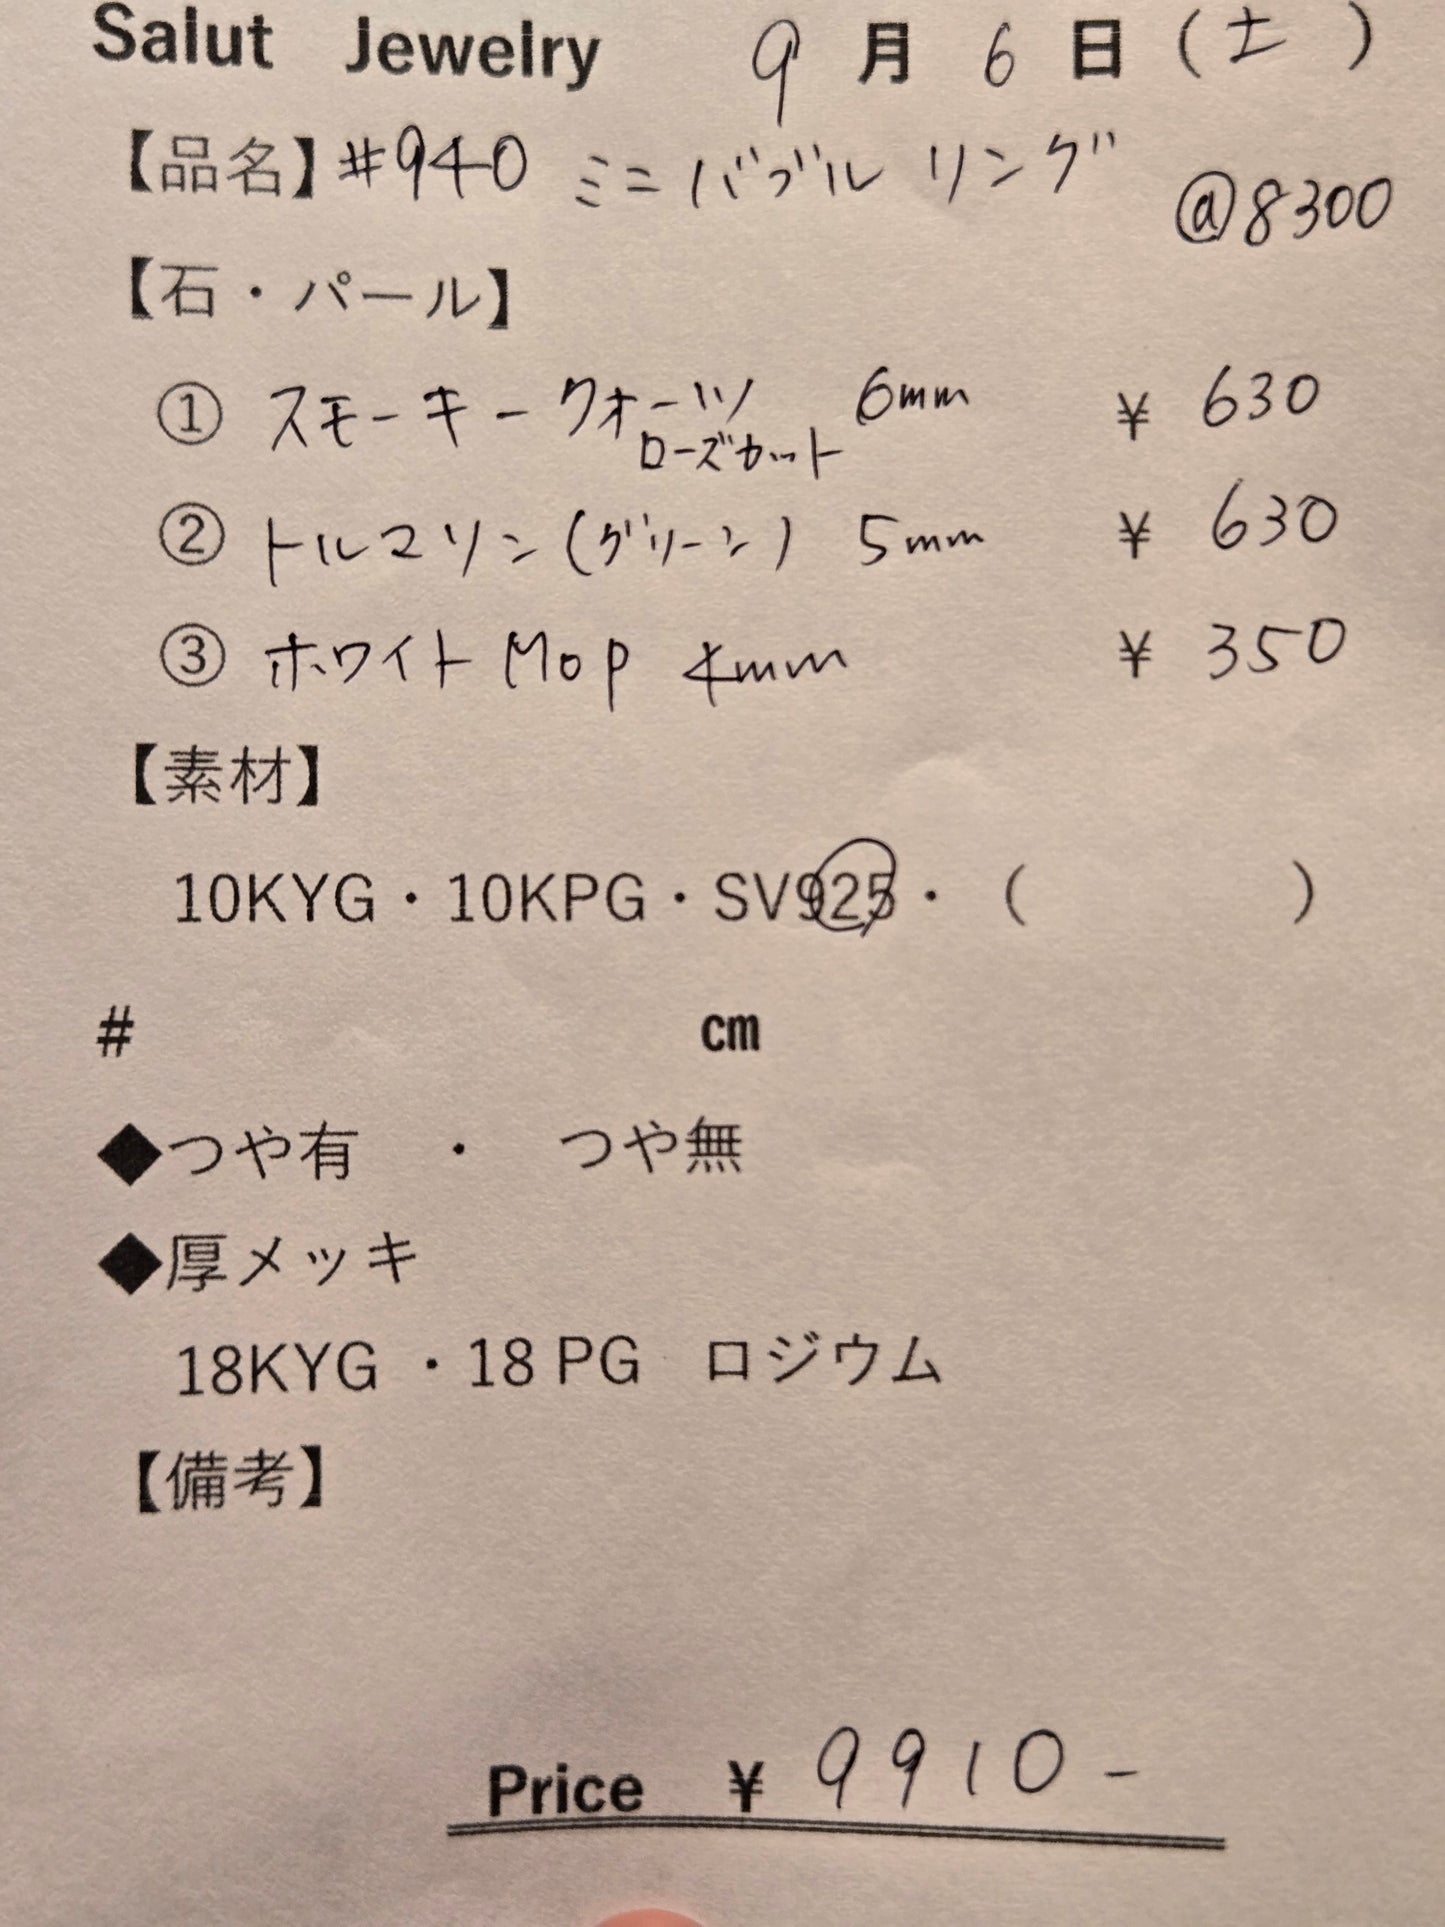 Salut Jewelry 9月6日(土)
【品名】#940 ミニバブルリング
@8300
【石・パール】
① スモーキークォーツ 6mm ¥ 630
ローズカット
② トルマリン(グリーン) 5mm ¥ 630
③ ホワイトMOP 4mm ¥ 350
【素材】
10KYG・10KPG・SV925・( )
# cm
◆つや有 ・ つや無
◆厚メッキ
18KYG ・18 PG ロジウム
【備考】
Price ¥ 9910-